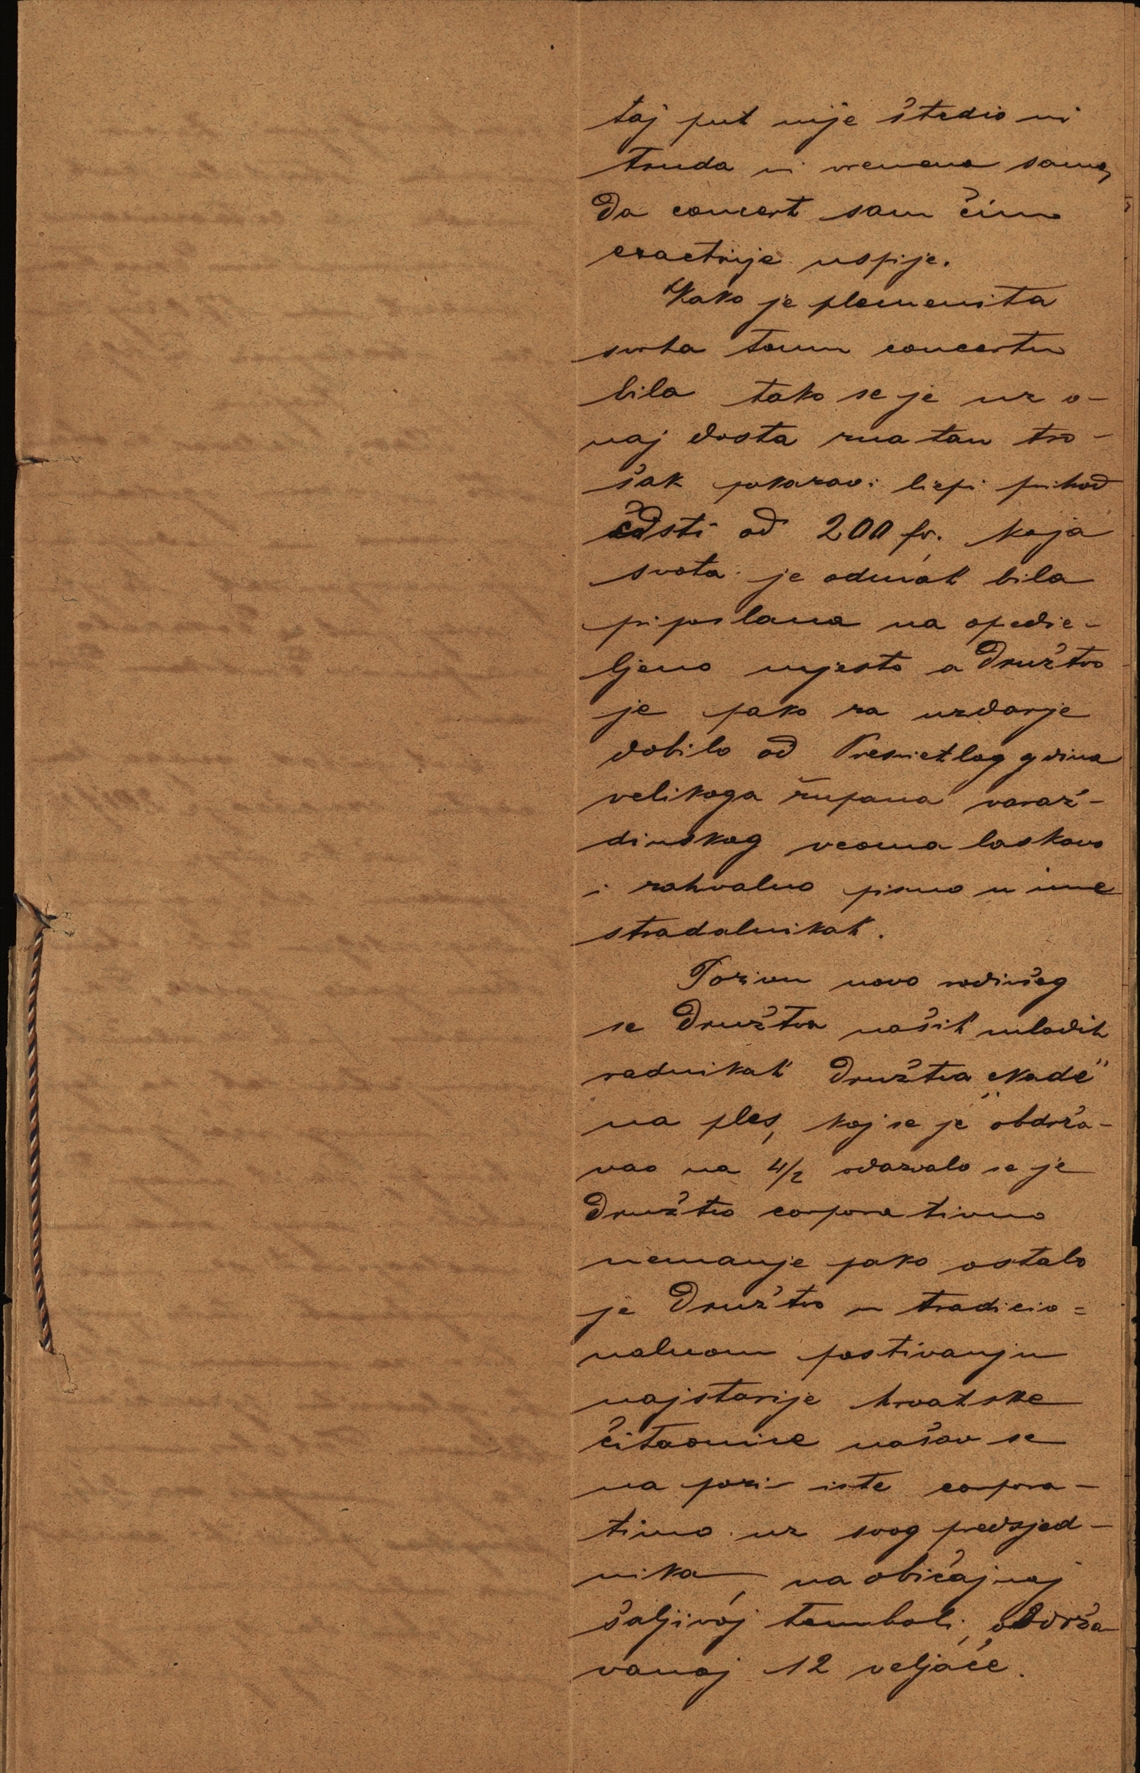 taj put nije štedio ni
truda ni vremena samo,
da concert sam čim
exactnije uspije.
Kako je plemenita
svrha tomu concertu
bila tako se je uz o-
naj dosta znatan tro-
šak pokazao i liepi prihod
čisti od 200 fr. koja
svota je odmah bila
pripostana na opredie-
ljeno mjesto a Družtvo
je pako za uzdarje
dobilo od Presvietlog gdina
velikoga župana varaž-
dinskog veoma laskavo
i zahvalno pismo u ime
stradalnikah.
Pozivu novo rodivšeg
se Družtva naših mladih
radnikah Družtva „Nade"
na ples, koj se je obdrža-
vao na 4/2 odazvalo se je
Družtvo corporativno
nemanje pako ostalo
je Družtvo u tradicio=
nalnom postivanju
najstarije hrvatske
čitaonice našav se
na poziv iste corpora-
tivno uz svog predsjed-
nika, na običajnoj
šaljivoj tomboli, obdrža
vanoj 12 veljače.